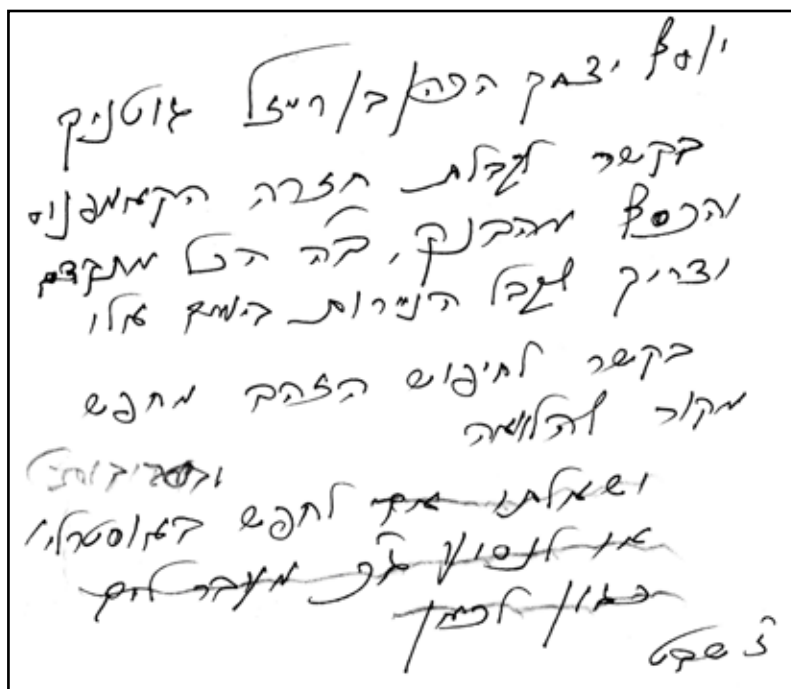 יוסף יצחק הכהן בן רייזל גוטניק
בקשר לקבלת חזרה הקאמפנוס
והכסף מהבנק, ב"ה הכל מתקדם
וצריך לקבל הניירות בימים אלו
בקשר לחיפוש הזהב מחפש
מקור להלוואה
ובסביבותי'
ושאלתו אם לחפש באוסטרלי'
או לנסוע ג"כ מעבר לים
כגון לכאן
ז' שבט